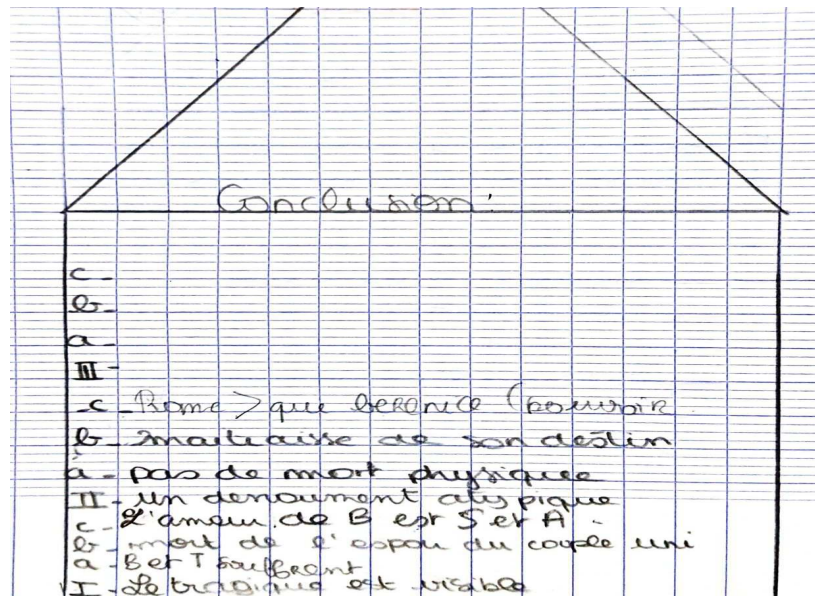 Conclusion :
c -
b -
a -
III -
c - Rome > que berenice (pouvoir
b - maitraisse de son destin
a - pas de mort physique
II - un denoument atypique
c - L'amour de B est S et A.
b - mort de l'espou du couple uni
a - B et T souffrent
I - Le tragique est visible